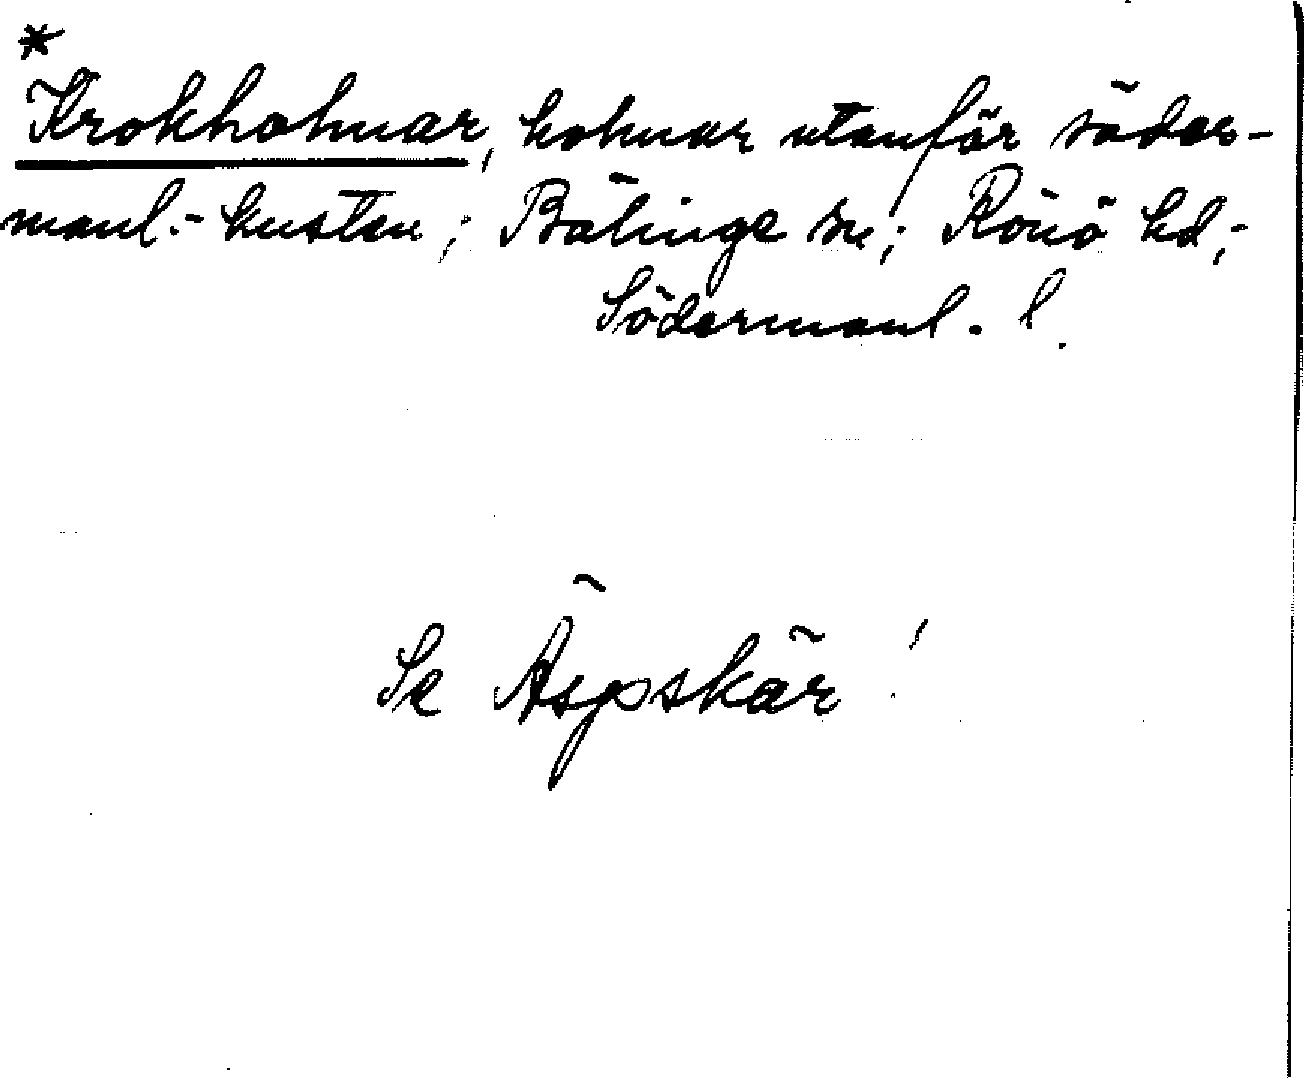 *
Krokholmar, holmar utanför söder-
manl.-kusten; Bälinge sn; Rönö hd;-
Södermanl. l.
Se Äspskär!